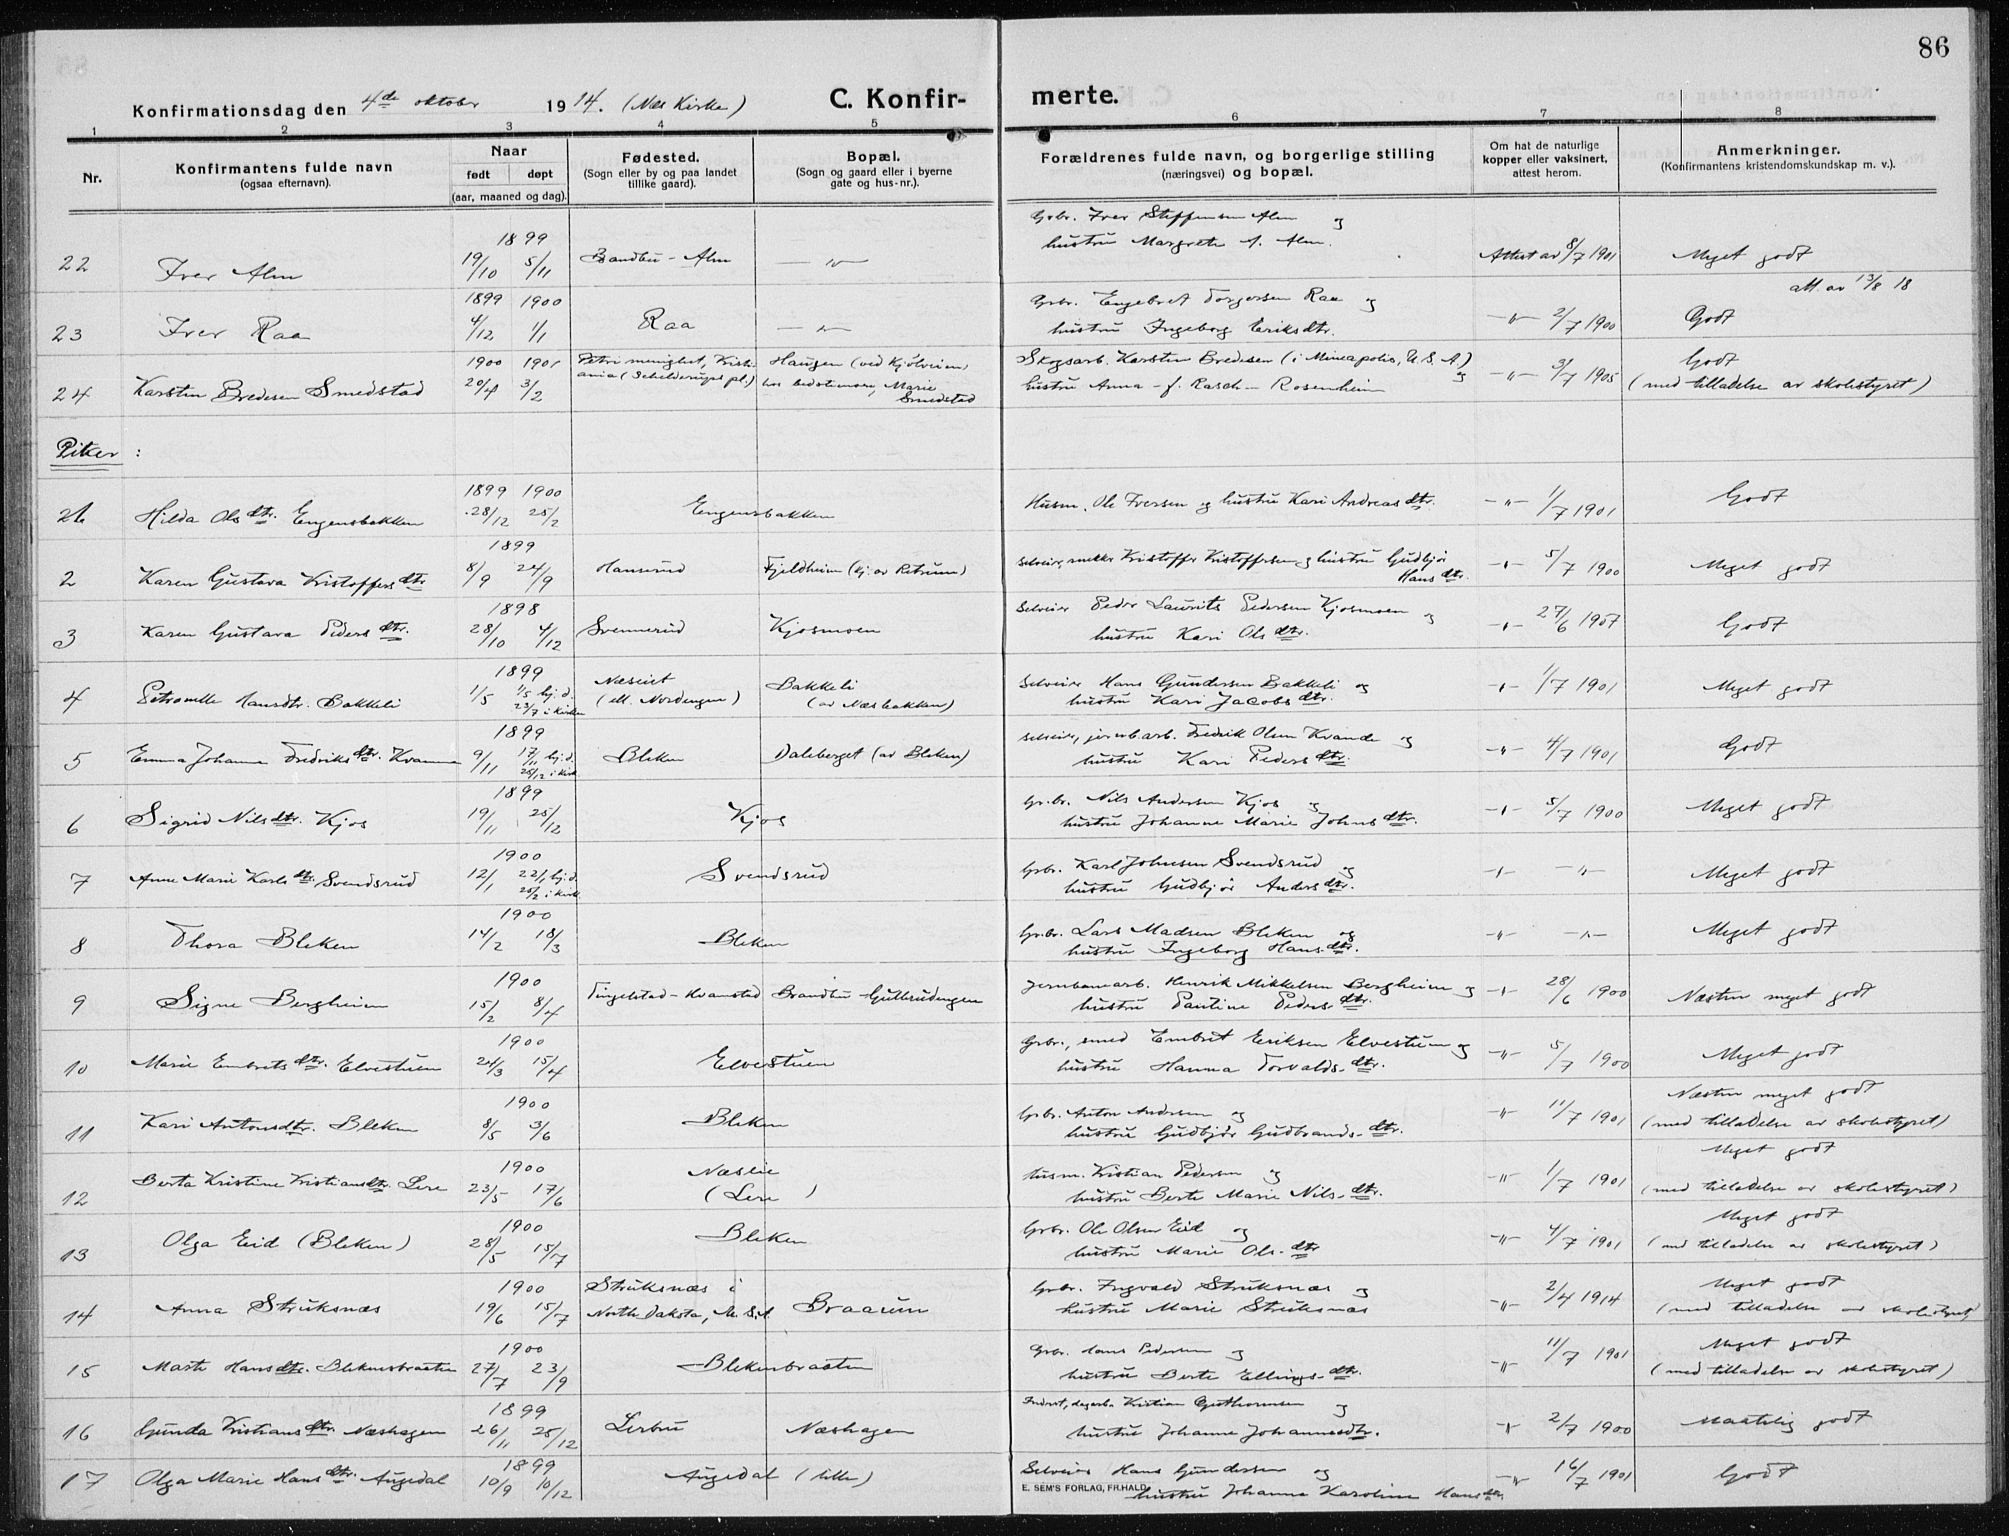 86
Konfirmationsdag den 4de oktober 1914. (Næs Kirke)
C. Konfirmerte.
1 2 3 4 5 6 7 8
Nr.
Konfirmantens fulde navn
(ogsaa efternavn).
Naar
født døpt
(aar, maaned og dag).
Fødested.
(Sogn eller by og paa landet
tillike gaard).
Bopæl.
(Sogn og gaard eller i byerne
gate og hus-nr.).
Forældrenes fulde navn, og borgerlige stilling
(næringsvei) og bopæl.
Om hat de naturlige
kopper eller vaksinert,
attest herom.
Anmerkninger.
(Konfirmantens kristendomskundskap m. v.).
Gbr. Iver Steffensen Alm og
1899
22 Iver Alm 19/10 5/11 Brandbu - Alm — " — hustru Margrete A. Alm. Attest av 8/7 1901 Meget godt
att. av 13/8 18
1899 1900 Gbr. Engebret Torgersen Raa og
23 Iver Raa 4/12 1/1 Raa — " — hustru Ingeborg Eriksdtr. — " — 2/7 1900 Godt
1900 1901 Petri menighet, Kristi- Haugen (ved Kjølveien) Skogsarb. Karsten Bredesen (i Mineapolis, U. S. A) og Godt
24 Karsten Bredesen Smedstad 20/4 3/2 ania (Schilderups pl.) hos bedstemor, Marie Smedstad hustru Anna - f. Rasch - Rosenheim - " - 3/7 1905 (med tilladelse av skolestyret)
Piker :
1899 1900
1 Hilda Olsdtr. Engensbakken 28/12 25/2 Engensbakken Husm. Ole Iversen og hustru Kari Andreasdtr. - " - 1/7 1901 Godt
1899
2 Karen Gustava Kristoffersdtr 8/9 24/9 Hanserud Fjeldheim (kj. av Retrum) Selveier, snekker Kristoffer Kristoffersen og hustru Gudbjør Hansdtr. - " - 5/7 1900 Meget godt
1898 Selveier Peder Laurits Pedersen Kjosmoen og
3 Karen Gustava Pedersdtr. 28/10 4/12 Svennerud Kjosmoen hustru Kari Olsdtr. - " - 27/6 1907 Godt
1899
4 Petronelle Hansdtr. Bakkeli 1/5 1/5 hj. d. 23/7 i kirken Næseiet (ell. Nordengen) Bakkeli (av Næsbakken) Selveier Hans Gundersen Bakkeli og
hustru Kari Jacobsdtr. - " - 1/7 1901 Meget godt
1899
5 Emma Johanne Fredriksdtr. Kvamme 9/11 17/11 hj. d. 26/12 i kirk Bleken Daleberget (av Bleken) selveier, jernb.arb. Fredrik Olsen Kvande og
hustru Kari Pedersdtr. - " - 4/7 1901 Godt
1899
6 Sigrid Nilsdtr. Kjos 19/11 25/12 Kjos Gbr. Nils Andersen Kjos og
hustru Johanne Marie Johnsdtr. - " - 5/7 1900 Meget godt
1900
7 Anne Marie Karlsdtr. Svendsrud 12/1 22/1 hj. d. 25/2 i kirk. Svendsrud Gbr. Karl Johnsen Svendsrud og
hustru Gudbjør Andersdtr. - " - - " - Meget godt
1900
8 Thora Bleken 14/2 18/3 Bleken Gbr. Lars Madsen Bleken og
hustru Ingeborg Hansdtr. - " - - " - Meget godt
1900
9 Signe Bergheim 15/2 8/4 Tingelstad - Kvamstad Brandbu Gulbrudengen Jernbanearb. Henrik Mikkelsen Bergheim og
hustru Pauline Pedersdtr. - " - 28/6 1900 Næsten meget godt
1900
10 Marie Embretsdtr. Elvestuen 24/3 15/4 Elvestuen Gbr., smed Embret Eriksen Elvestuen og
hustru Hanna Torvaldsdtr. - " - 5/7 1900 Meget godt
1900
11 Kari Antonsdtr. Bleken 8/5 3/6 Bleken Gbr. Anton Andersen og
hustru Gudbjør Gudbrandsdtr. - " - 11/7 1901 Næsten meget godt
(med tilladelse av skolestyret)
1900
12 Berta Kristine Kristiansdtr. Lere 23/5 17/6 Næslie (Lere) husm. Kristian Pedersen og
hustru Berte Marie Nils-dtr. - " - 1/7 1901 Meget godt
(med tilladelse av skolestyret)
1900
13 Olga Eid (Bleken) 28/5 15/7 Bleken Gbr. Ole Olsen Eid og
hustru Marie Ols-dtr - " - 4/7 1901 Meget godt
(med tilladelse av skolestyret)
1900
14 Anna Struksnæs 19/6 15/7 Struksnæs i North Dakota, U. S. A. Braaum Gbr. Ingvald Struksnæs og
hustru Marie Struksnæs - " - 2/4 1914 Meget godt
(med tilladelse av skolestyret)
1900
15 Marte Hansdtr. Blekensbraaten 27/7 23/9 Blekenbraaten Gbr. Hans Pedersen og
hustru Berte Ellings-dtr. - " - 11/7 1901 Meget godt
(med tilladelse av skolestyret)
1899
16 Gunda Kristiansdtr. Næshagen 26/11 25/12 Lerbru Næshagen Kristian Guthormsen og
hustru Johanne Johannesdtr. - " - 2/7 1900 Maatelig godt
1899
17 Olga Marie Hansdtr. Augedal 10/9 10/12 Augedal (lille) Selveier Hans Gundersen og
hustru Johanne Karoline Hansdtr. - " - 16/7 1901 Godt
E. SEM'S FORLAG, FR.HALD.